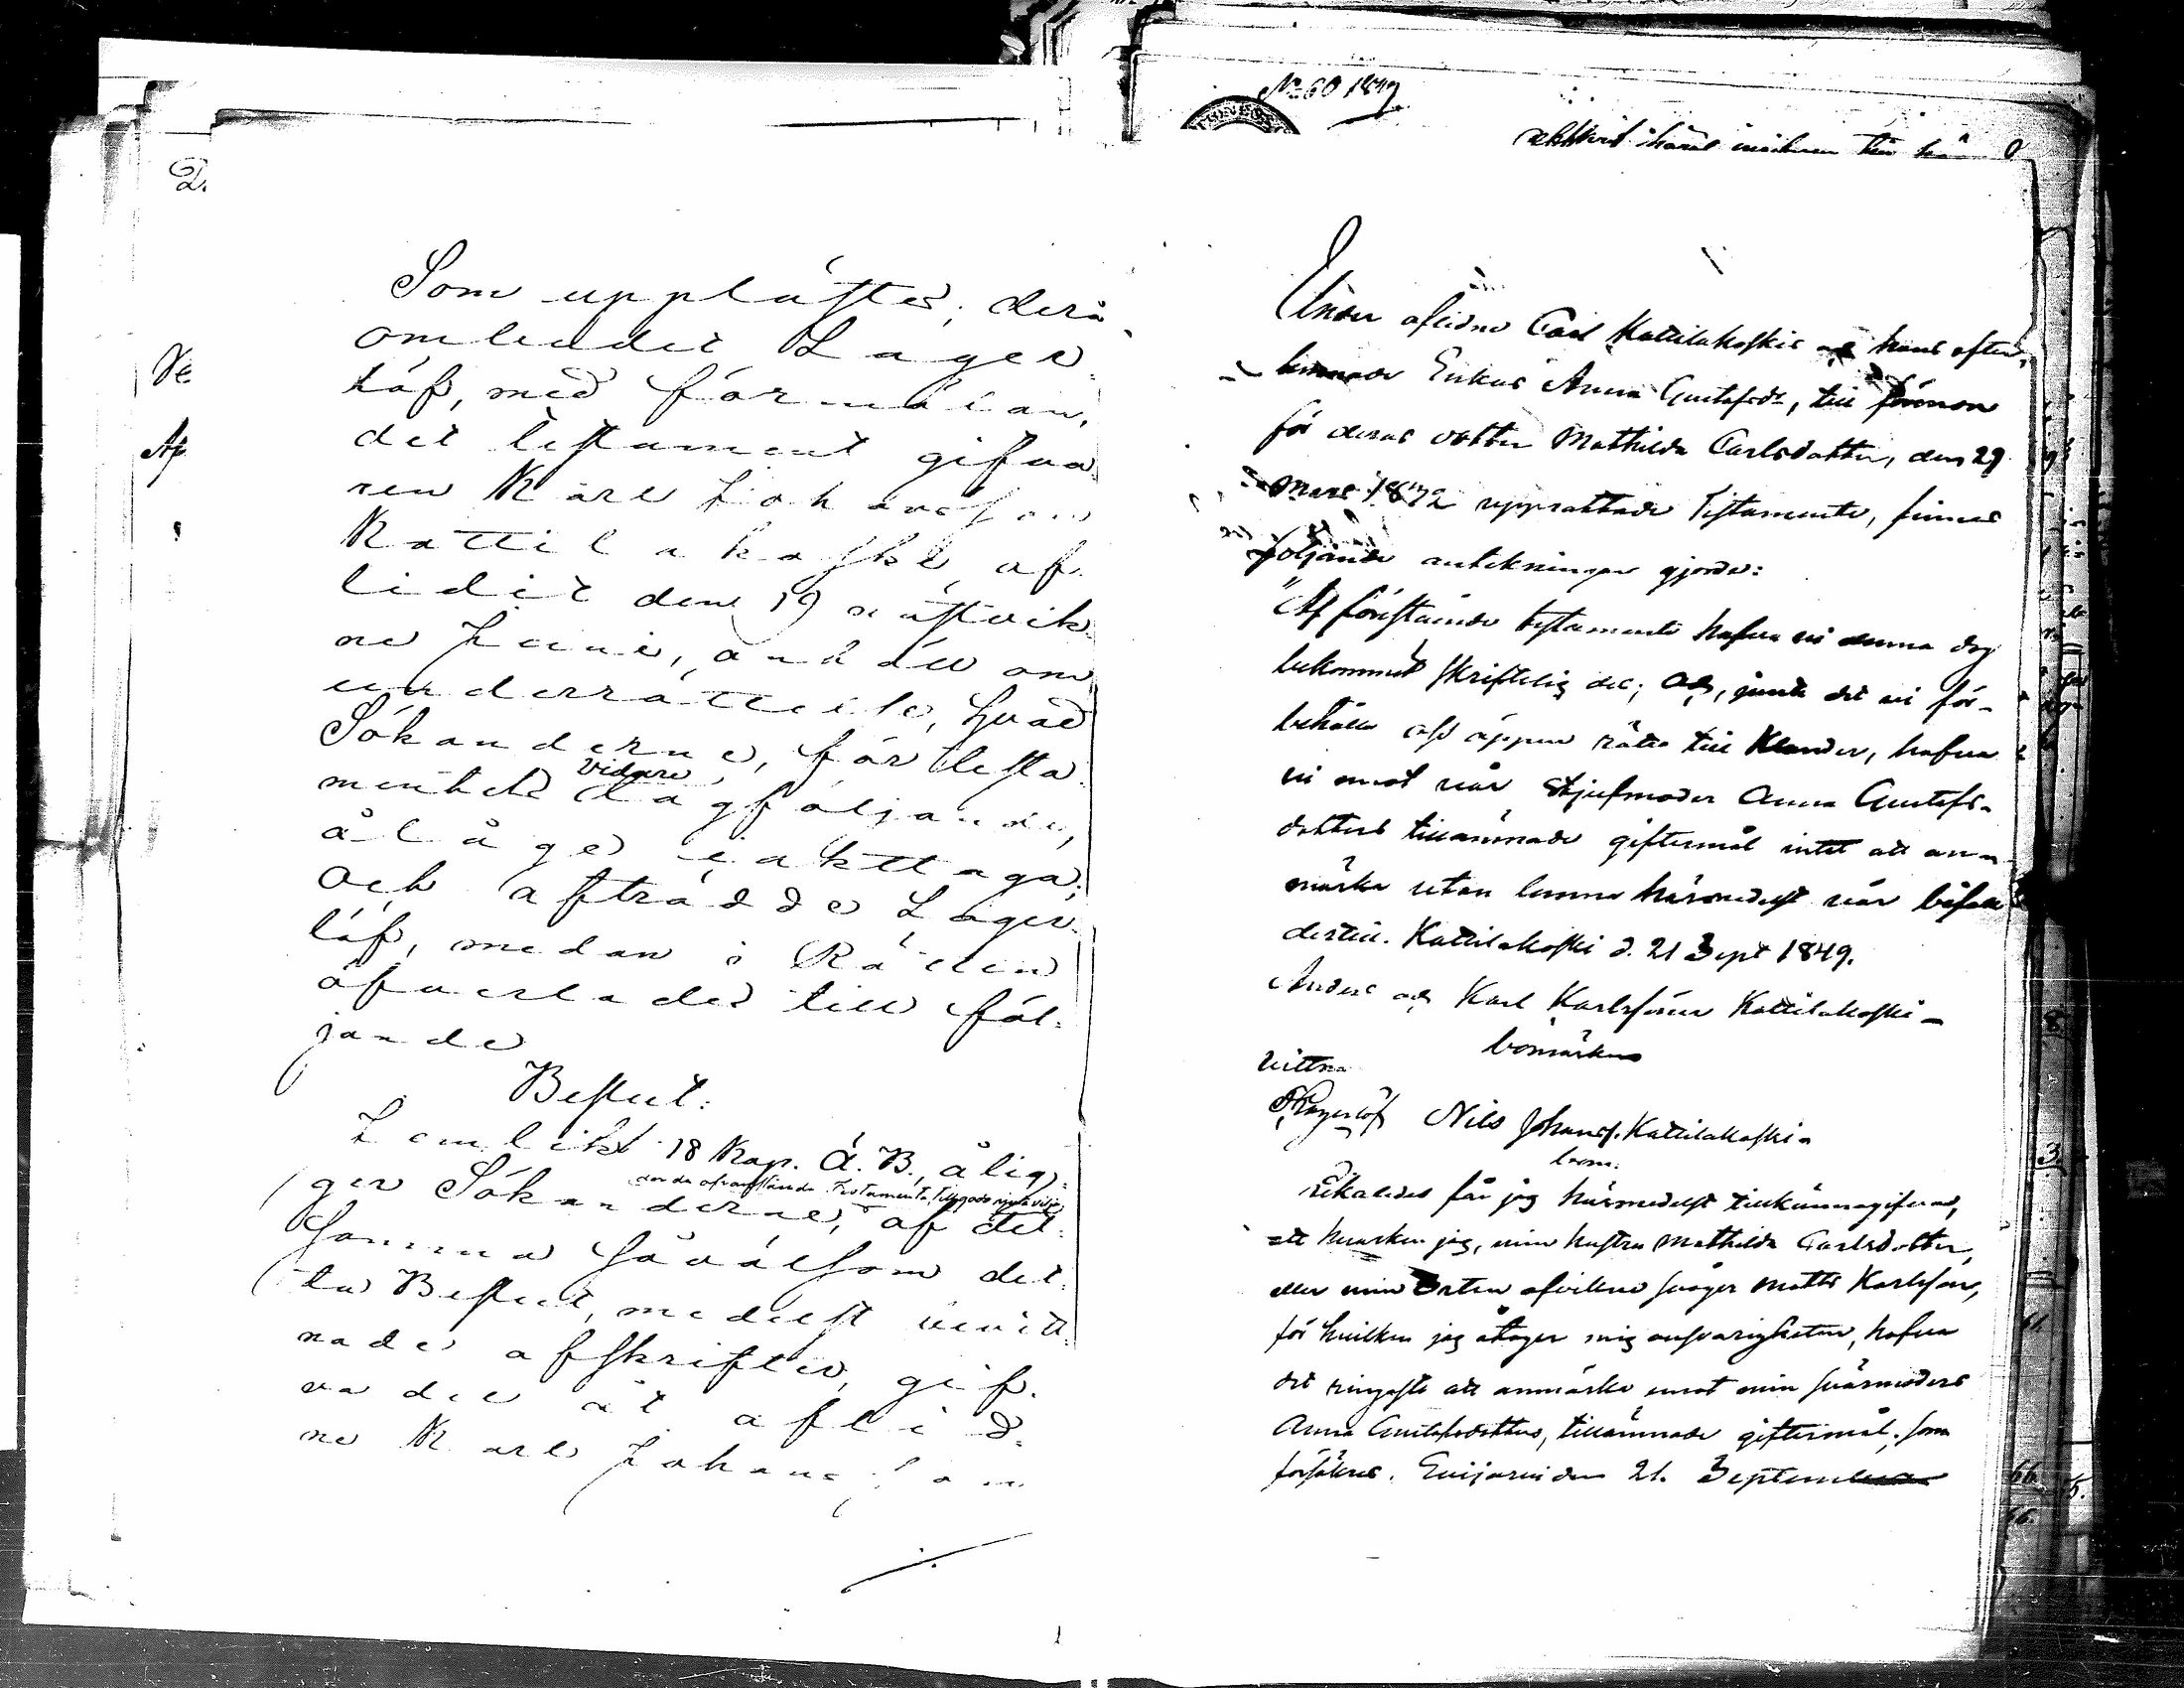 Som upplästes, derå
omleddes Lager
löf, med förmälan,
det testament gifva
ren Karl Johansson
Kattilakoski, af
lidit den 19 sistvik
ne Junii, anhöll om
underrättelse, hvad
Sökanderne, för testa
mentets vidare lagföljande,
ålåge iakttaga;
Och afträdde Lager
löf, medan i Rätten
öfverlades till föl:
jande
Beslut:
Jemlikt 18 Kap. Ä. B., ålig:
ger Sökanderne, af det
samma såväl som det
ta Beslut, medelst bevitt
nade afskrifter, gif
va del åt aflid
ne Karl Johansson
No 60 1849
Under aflidne Carl Kattilakoskis och hans efter
lemnade Enkas Anna Gustafsdr, till förmon
för deras dotter Mathilda Carlsdotter, den 29
Mars 1842 upprättade Testamente, finnas
följande antekningar gjorda:
"Af förestående testamente hafva vi denna dag
bekommit skriftelig del; och, jemte det vi för-
behålla oss öppen rätt till Klander, hafva
vi emot vår Stjufmoder Anna Gustafs-
dotters tillämnade giftermål intet att an-
märka utan lemna härmedelst vår bifall
dertill. Kattilakoski d. 21 Sept 1849.
Anders och Karl Karlssöner Kattilakoski
bomärken
Vittna
Lagerlöf Nils Johanss. Kattilakoski
bom.
Likaledes får jag härmedelst tillkännagifva,
att hvarken jag, min hustru Mathilda Carlsdotter,
eller min orten afvikne svåger Matts Karlsson,
för hvilken jag åtager mig ansvarigheten, hafva
det ringaste att anmärka emot min svärmoders
Anna Gustafsdotters, tillämnade giftermål, som
försäkras. Evijärvi den 21. September